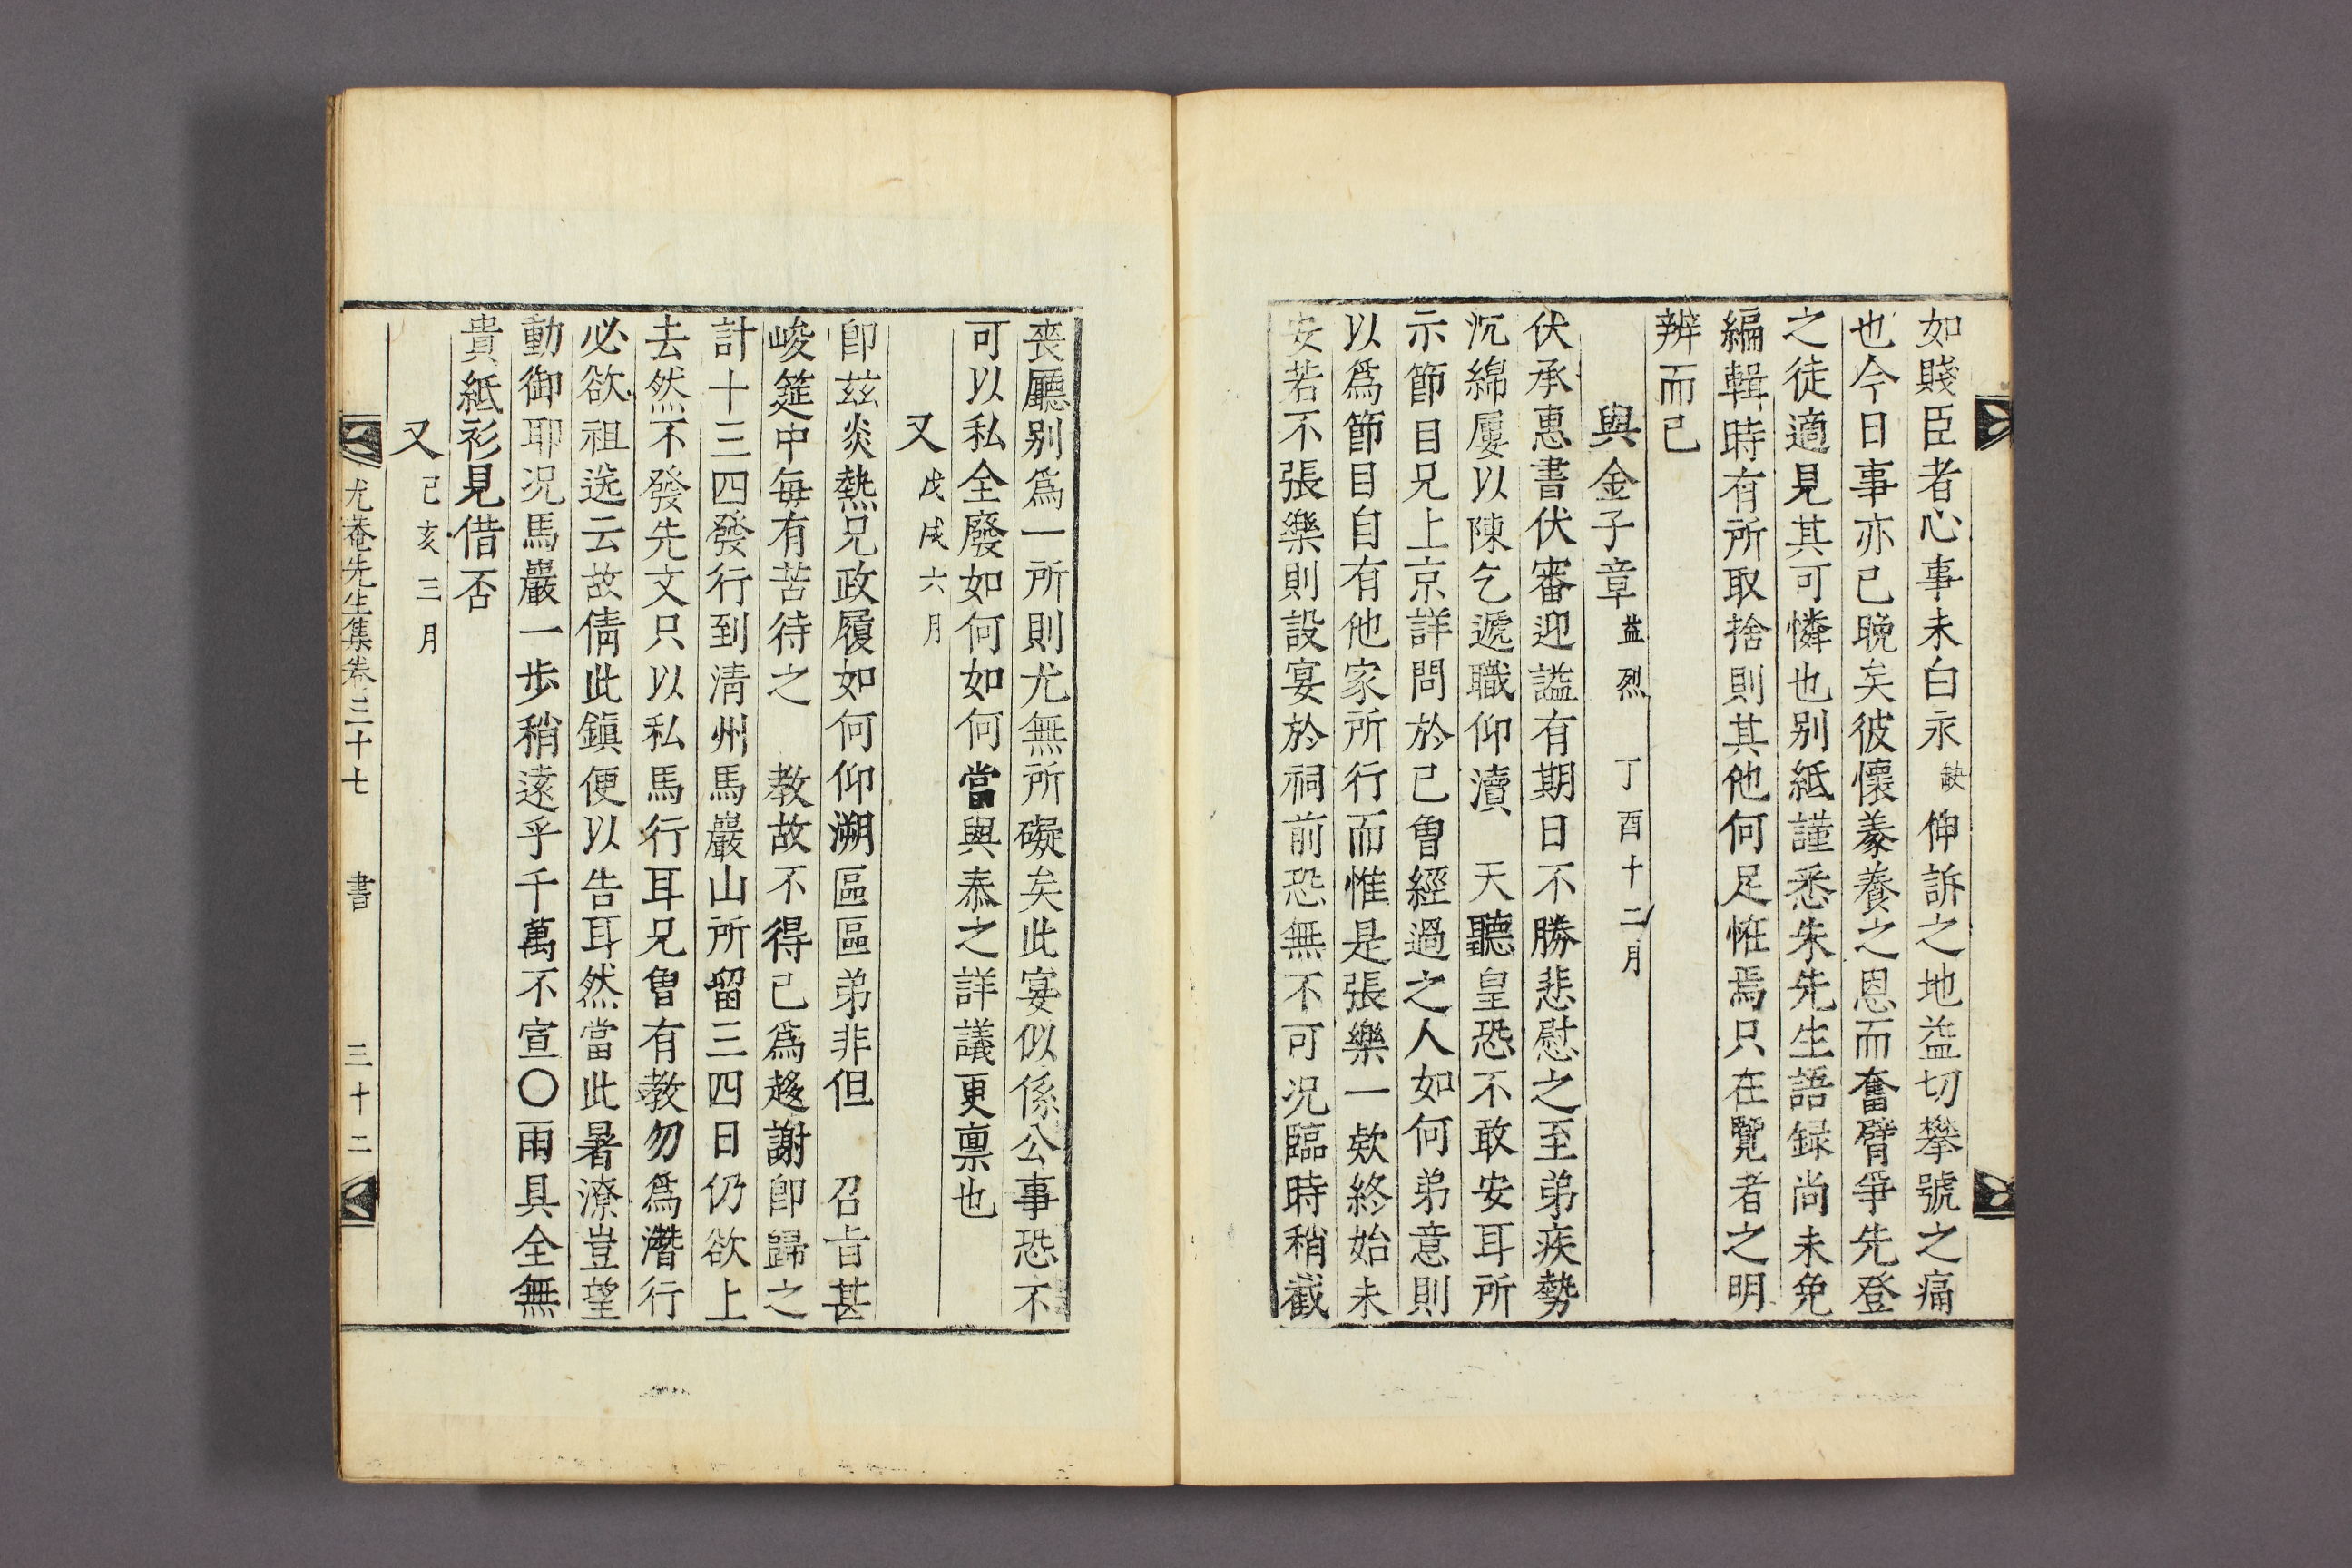 如賤臣者心事未白永缺伸訴之地益切攀號之痛
也今日事亦已晩矣彼懷豢養之恩而奮臂爭先登
之徒適見其可憐也別紙謹悉朱先生語録尚未免
編輯時有所取捨則其他何足恠焉只在覽者之明
辨而已
與金子章益烈 丁酉十二月
伏承惠書伏審迎謚有期日不勝悲慰之至弟疾勢
沉綿屢以陳乞遞職仰瀆 天聽皇恐不敢安耳所
示節目兄上京詳問於已曾經過之人如何弟意則
以爲節目自有他家所行而惟是張樂一欵終始未
安若不張樂則設宴於祠前恐無不可况臨時稍截
喪廳别爲一所則尤無所礙矣此宴似係公事恐不
可以私全廢如何如何當與泰之詳議更禀也
又戊戌六月
卽玆炎熱兄政履如何仰溯區區弟非但 召旨甚
峻筵中每有苦待之 教故不得已爲趍謝卽歸之
計十三四發行到淸州馬巖山所留三四日仍欲上
去然不發先文只以私馬行耳兄曾有教勿爲潛行
必欲祖送云故倩此鎭便以告耳然當此暑潦豈望
動御耶况馬巖一步稍遠乎千萬不宣○雨具全無
貴紙衫見借否
又己亥三月
尤菴先生集卷三十七 書 三十二